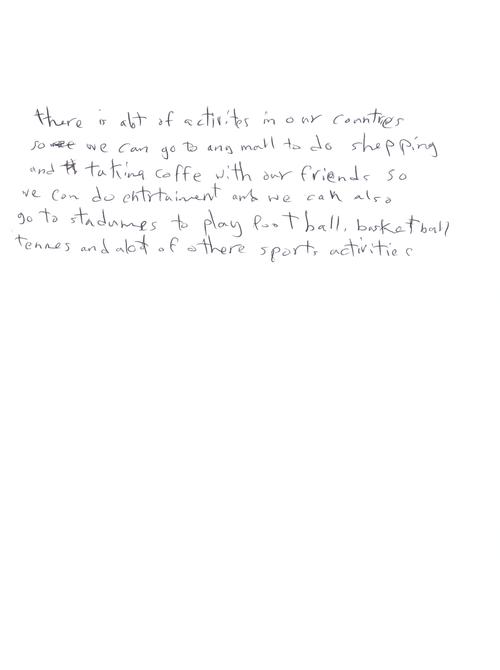 there is alot of activites in our countres
so we can go to any mall to do shopping
and taking coffe with our friends so
we can do entrtaiment and we can also
go to stadumes to play football, basketball
tennes and alot of othere sports activities